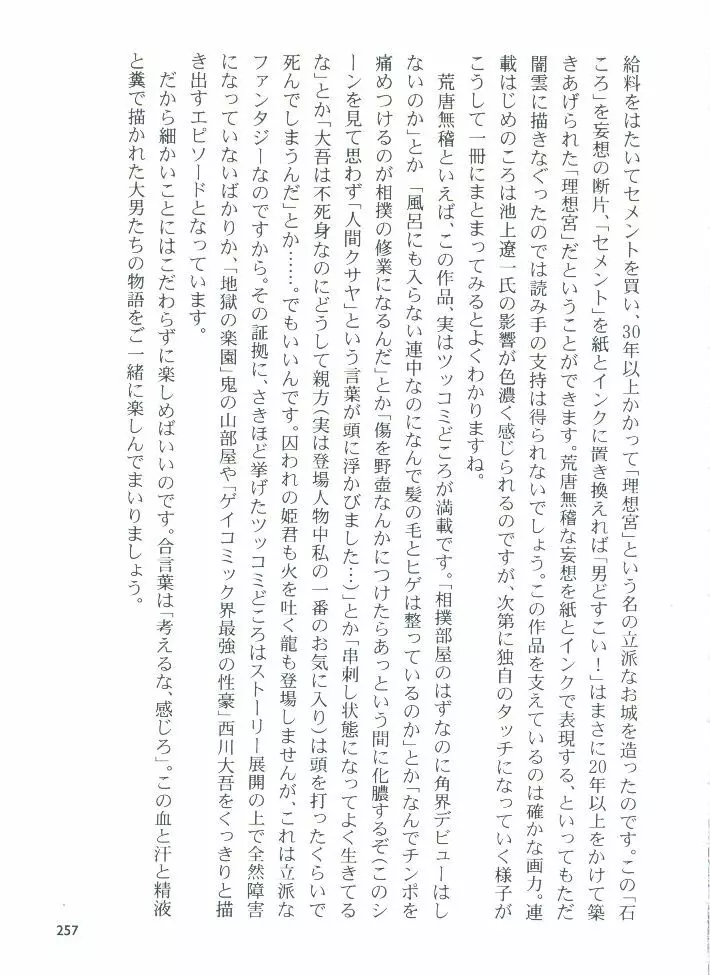 給料をはたいてセメントを買い、30年以上かかって「理想宮」という名の立派なお城を造ったのです。この「石
ころ」を妄想の断片、「セメント」を紙とインクに置き換えれば「男どすこい！」はまさに20年以上をかけて築
きあげられた「理想宮」だということができます。荒唐無稽な妄想を紙とインクで表現する、といってもただ
闇雲に描きなぐったのでは読み手の支持は得られないでしょう。この作品を支えているのは確かな画力。連
載はじめのころは池上遼一氏の影響が色濃く感じられるのですが、次第に独自のタッチになっていく様子が
こうして一冊にまとまってみるとよくわかりますね。
　荒唐無稽といえば、この作品、実はツッコミどころが満載です。「相撲部屋のはずなのに角界デビューはし
ないのか」とか　「風呂にも入らない連中なのになんで髪の毛とヒゲは整っているのか」とか「なんでチンポを
痛めつけるのが相撲の修業になるんだ」とか「傷を野壺なんかにつけたらあっという間に化膿するぞ（このシ
ーンを見て思わず「人間クサヤ」という言葉が頭に浮かびました…）」とか「串刺し状態になってよく生きてる
な」とか「大吾は不死身なのにどうして親方（実は登場人物中私の一番のお気に入り）は頭を打ったくらいで
死んでしまうんだ」とか……。でもいいんです。囚われの姫君も火を吐く龍も登場しませんが、これは立派な
ファンタジーなのですから。その証拠に、さきほど挙げたツッコミどころはストーリー展開の上で全然障害
になっていないばかりか、「地獄の楽園」鬼の山部屋や「ゲイコミック界最強の性豪」西川大吾をくっきりと描
き出すエピソードとなっています。
　だから細かいことにはこだわらずに楽しめばいいのです。合言葉は「考えるな、感じろ」。この血と汗と精液
と糞で描かれた大男たちの物語をご一緒に楽しんでまいりましょう。
257